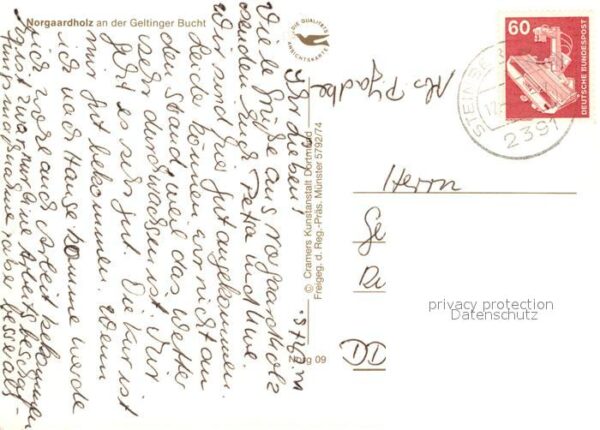 Norgaardholz an der Geltinger Bucht
DIE QUALITÄTS
ANSICHTSKARTE
60
DEUTSCHE BUNDESPOST
STEINBE
2391
Ihr Lieben!
Viele Grüße aus Norgaardholz
senden Euch Petra und Uwe.
Wir sind hier gut angekommen.
Leider können wir nicht an
den Strand, weil das Wetter
sehr durchwachsen ist. Mir
geht es sehr gut. Die Kur ist
mir gut bekommen. Wenn
ich nach Hause komme werde
ich wohl auch Arbeit bekommen
zwar nur eine Arbeitsbeschaf-
fungsmaßnahme aber besser als
© Cramers Kunstanstalt Dortmund
Freigeg. d. Reg.-Präs. Münster 5792/74
Norg 09
Herrn
Ge
privacy protection
Datenschutz